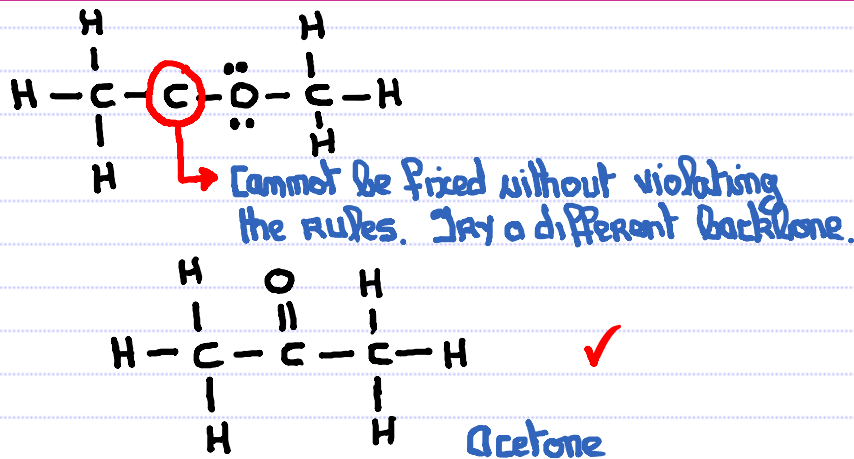 H H
H – C – C – O – C – H
H H
Cannot be fixed without violating
the rules. Try a different backbone.
H O H
H – C – C – C – H ✓
H H
Acetone